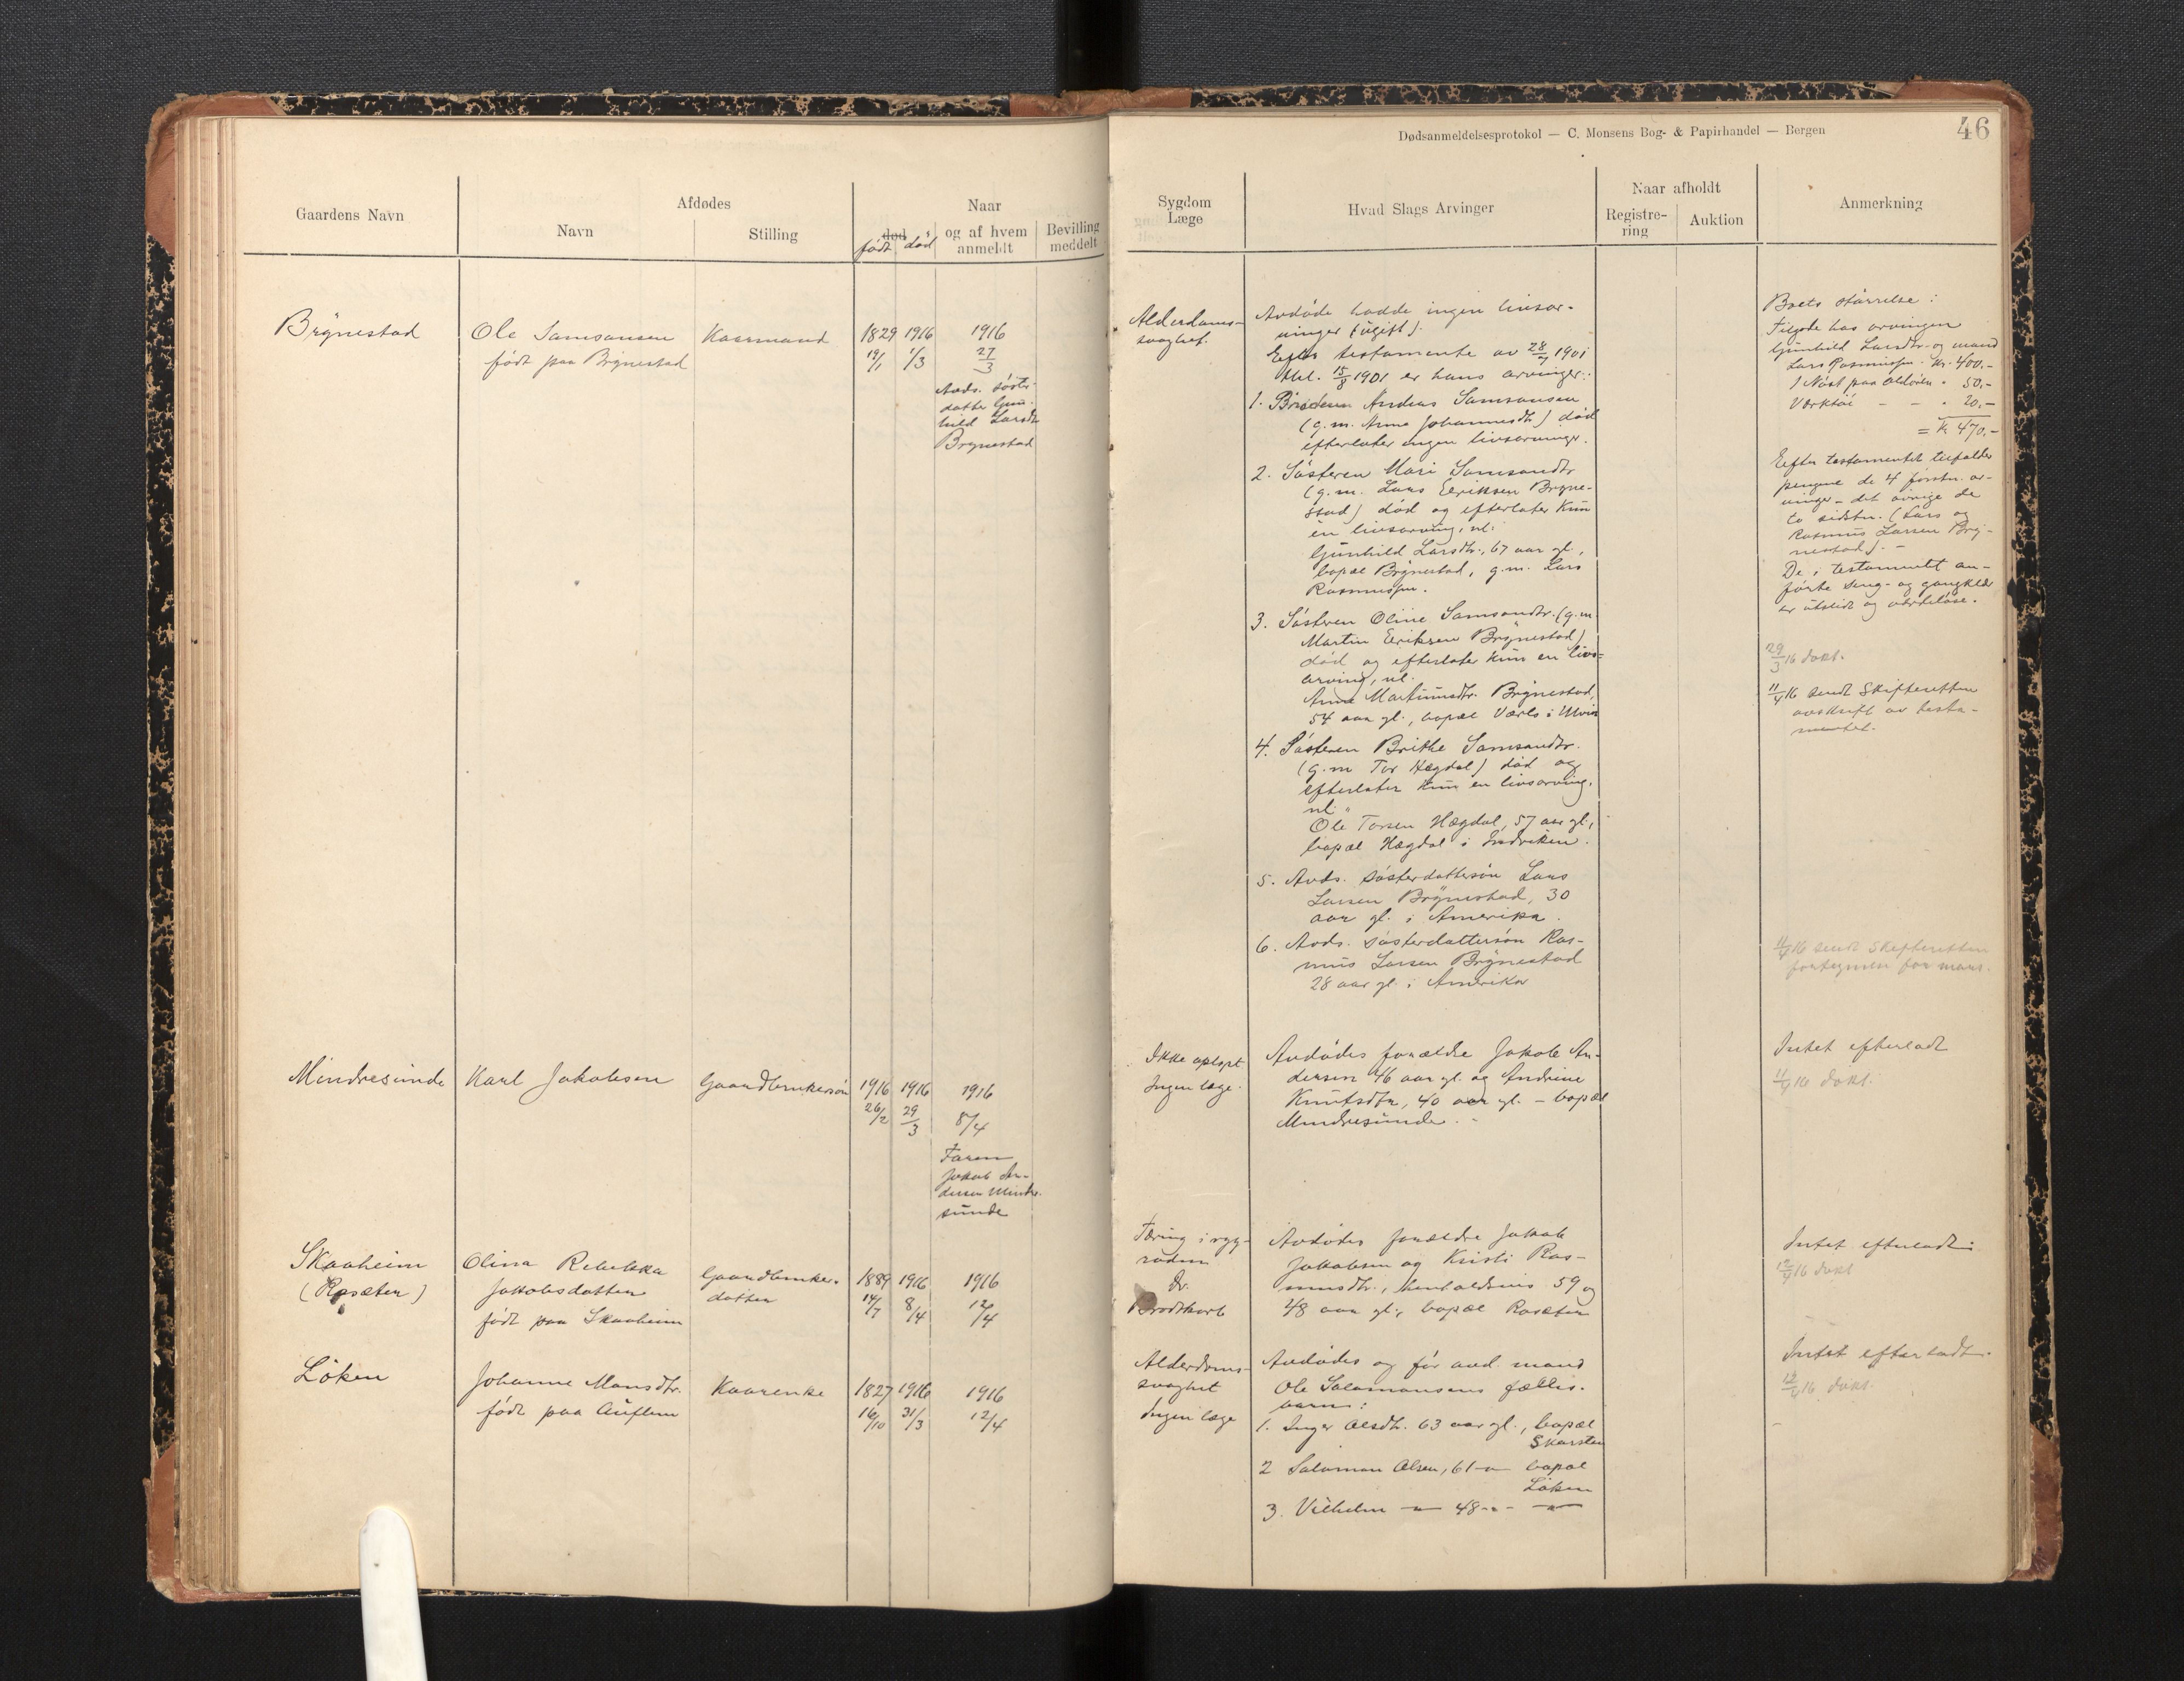 Dødsanmeldelsesprotokol — C. Monsens Bog- & Papirhandel — Bergen
46
Gaardens Navn
Afdødes
Navn
Stilling
Naar
død
født død
og af hvem
anmeldt
Bevilling
meddelt
Sygdom
Læge
Hvad Slags Arvinger
Naar afholdt
Registre-
ring
Auktion
Anmerkning
Brynestad
Ole Samsonsen
født paa Brynestad
Kaarmand
1829 1916 1916
19/1 1/3 27/3
Avds. søster-
datter Gun-
hild Larsdtr
Brynestad
Alderdoms-
svaghet.
Avdøde hadde ingen livsar-
vinger (ugift).
Efter testamente av 28/7 1901
thl. 15/8 1901 er hans arvinger:
1. Broderen Andreas Samsonsen
(g.m. Anna Johannesdtr) død
efterlater ingen livsarvinger.
2. Søsteren Mari Samsondtr
(g.m. Lars Eriksen Bryne-
stad) død og efterlater kun
en livsarving, nl:
Gunhild Larsdtr., 67 aar gl.,
bopæl Brynestad, g.m. Lars
Rasmussen.
3. Søsteren Oline Samsondtr. (g.m
Martin Eriksen Brynestad)
død og efterlater kun en livs-
arving, nl.
Anna Martinusdtr. Brynestad,
54 aar gl., bopæl
4. Søsteren Brithe Samsondtr.
(g.m Tor Hægdal) død og
efterlater kun en livsarving,
nl.
Ole Torsen Hægdal, 57 aar gl.,
bopæl Hægdal i Indviken.
5. Avds. søsterdattersøn Lars
Larsen Brynestad, 30
aar gl. i Amerika.
6. Avds. søsterdattersøn Ras-
mus Larsen Brynestad
28 aar gl. i Amerika
Boets størrelse:
Tilgode hos arvingen
Gunhild Larsdtr. og mand
Lars Rasmussen. Kr. 400.-
1 Nøst paa Oldøren " 50.-
Verktøi - - " 20.-
= Kr 470.-
Efter testamentet tilfalder
pengene de 4 første ar-
vinger - det øvrige de
to sidste. (Lars og
Rasmus Larsen Bry-
nestad). -
De i testamentet an-
førte seng- og gangklær
er utslidt og værdiløse.
29/3 16 dokt.
11/4 16 sendt Skifteretten
avskrift av testa-
mentet.
11/4 16 sendt Skifteretten
Mindresunde
Karl Jakobsen
Gaardbrukersøn
1916 1916 1916
26/2 29/3 8/4
Faren
Jakob An-
dersen Mindre-
sunde
Ikke oplyst
Ingen læge.
Avdødes forældre Jakob An-
dersen 46 aar gl. og Andrine
Knutsdtr, 40 aar gl. - bopæl
Mindresunde. -
Intet efterladt
11/4 16 dokt.
Skaaheim
(Rosæter)
Olina Rebekka
Jakobsdatter
født paa Skaaheim
Gaardbruker-
datter
1889 1916 1916
14/7 8/4 12/4
Tæring i ryg-
raden
Dr.
Avdødes forældre Jakob
Jakobsen og Kristi Ras-
musdtr., henholdsvis 59 og
48 aar gl., bopæl Rosæter
Intet efterladt
12/4 16 dokt
Løken
Johanne Monsdtr.
født paa Auflem
Kaarenke
1827 1916 1916
16/10 31/3 12/4
Alderdoms-
svaghet
Ingen læge
Avdødes og før avd. mand
Ole Salomonsens fælles-
barn:
1. Inger Olsdtr. 63 aar gl., bopæl
Skarsten
2 Salomon Olsen, 61 –"– bopæl
Løken
3. Vilhelm –"– 48 –"– –"–
Intet efterladt.
12/4 16 dokt.